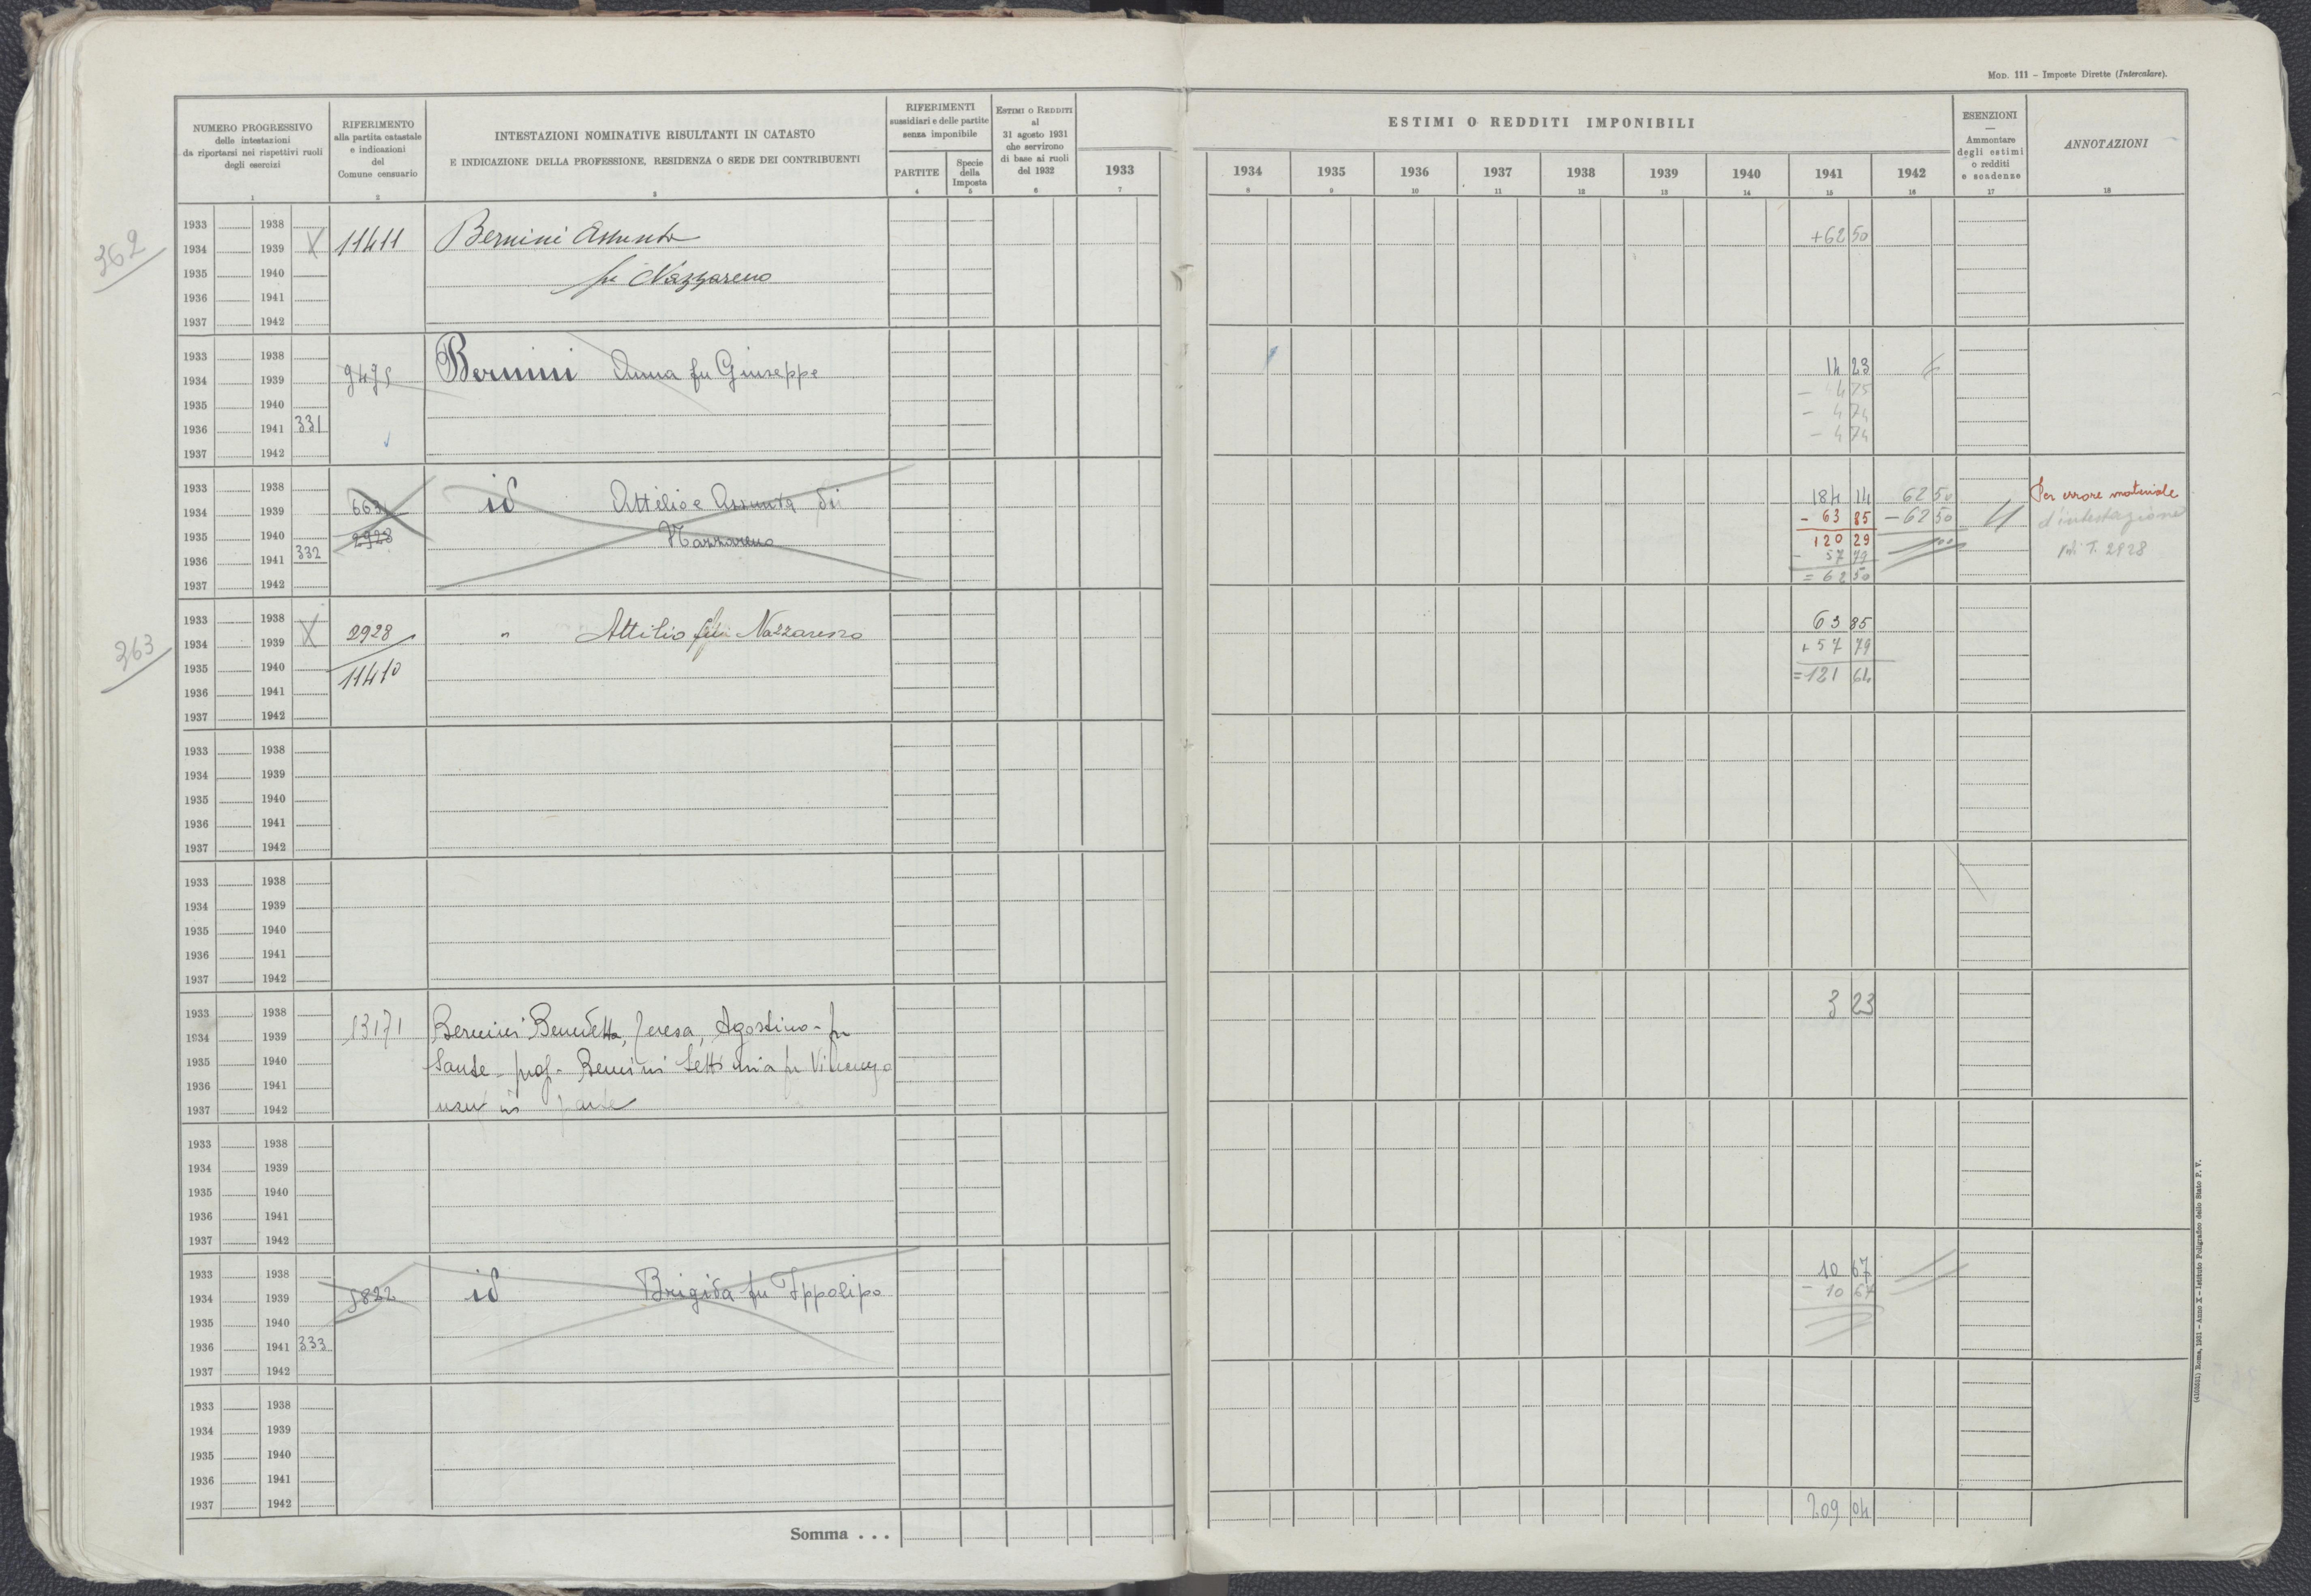 Mod. 111 - Imposte Dirette (Intercalare).
NUMERO PROGRESSIVO
delle intestazioni
da riportarsi nei rispettivi ruoli
degli esercizi
1
RIFERIMENTO
alla partita catastale
e indicazioni
del
Comune censuario
2
INTESTAZIONI NOMINATIVE RISULTANTI IN CATASTO
E INDICAZIONE DELLA PROFESSIONE, RESIDENZA O SEDE DEI CONTRIBUENTI
3
RIFERIMENTI
sussidiari e delle partite
senza imponibile
PARTITE
4
Specie
della
Imposta
5
Estimi o Redditi
al
31 agosto 1931
che servirono
di base ai ruoli
del 1932
6
1933
7
ESTIMI O REDDITI IMPONIBILI
1934 1935 1936 1937 1938 1939 1940 1941 1942
8 9 10 11 12 13 14 15 16
ESENZIONI
—
Ammontare
degli estimi
o redditi
e scadenze
17
ANNOTAZIONI
18
362
1933 1938
1934 1939 X 11411 Bernini Assunta +62 50
1935 1940 fu Nazzareno
1936 1941
1937 1942
1933 1938
1934 1939 Bernini Anna fu Giuseppe 14 23
1935 1940
1936 1941 331 - 4 74
1937 1942 - 4 74
1933 1938
1934 1939 663 id Attilio e Assunta di 184 14 62 50 Per errore materiale
1935 1940 2928 Nazzareno - 63 85 - 62 50 d'intestazione
1936 1941 332 120 29
- 57 79 2928
1937 1942 = 62 50
363
1933 1938 63 85
1934 1939 X 2928 " Attilio Nazzareno + 57 79
1935 1940 11410 = 121 64
1936 1941
1937 1942
1933 1938
1934 1939
1935 1940
1936 1941
1937 1942
1933 1938
1934 1939
1935 1940
1936 1941
1937 1942
1933 1938 3 23
1934 1939 13171 Bernini Benedetta, Teresa, Agostino - fu
1935 1940 Sante - prop - Bernini Settimia fu Vincenzo
1936 1941
1937 1942 usuf in parte
1933 1938
1934 1939
1935 1940
1936 1941
1937 1942
1933 1938 10 67
1934 1939 5822 id Brigida fu Ippolipo - 10 67
1935 1940
1936 1941 333
1937 1942
1933 1938
1934 1939
1935 1940
1936 1941
1937 1942
Somma . . . 209 04
(4103521) Roma, 1931 - Anno X - Istituto Poligrafico dello Stato P. V.